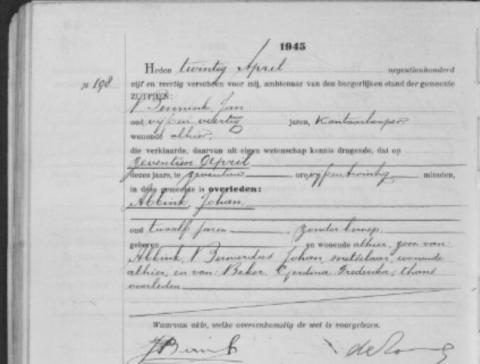 1945
Heden twintig April negentienhonderd
N 198. vijf en veertig verscheen voor mij, ambtenaar van den burgerlijken stand der gemeente
ZUTPHEN:
Jan
oud vijf en veertig jaren, Kantoorlooper
wonende alhier,
die verklaarde, daarvan uit eigen wetenschap kennis dragende, dat op
zeventien April
dezes jaars, te zeventien ure vijf en twintig minuten,
in deze gemeente is overleden:
Abbink, Johan
oud twaalf jaren zonder beroep
geboren en wonende alhier, zoon van
Abbink, Bernardus Johan, metselaar, wonende
alhier, en van Beker, Gerdina Frederika, thans
overleden
Waarvan akte, welke overeenkomstig de wet is voorgelezen.